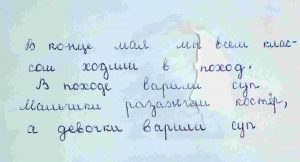 В конце мая мы всем клас-
сом ходили в поход.
В походе варили суп
Мальчики разажгли костёр,
а девочки варили суп